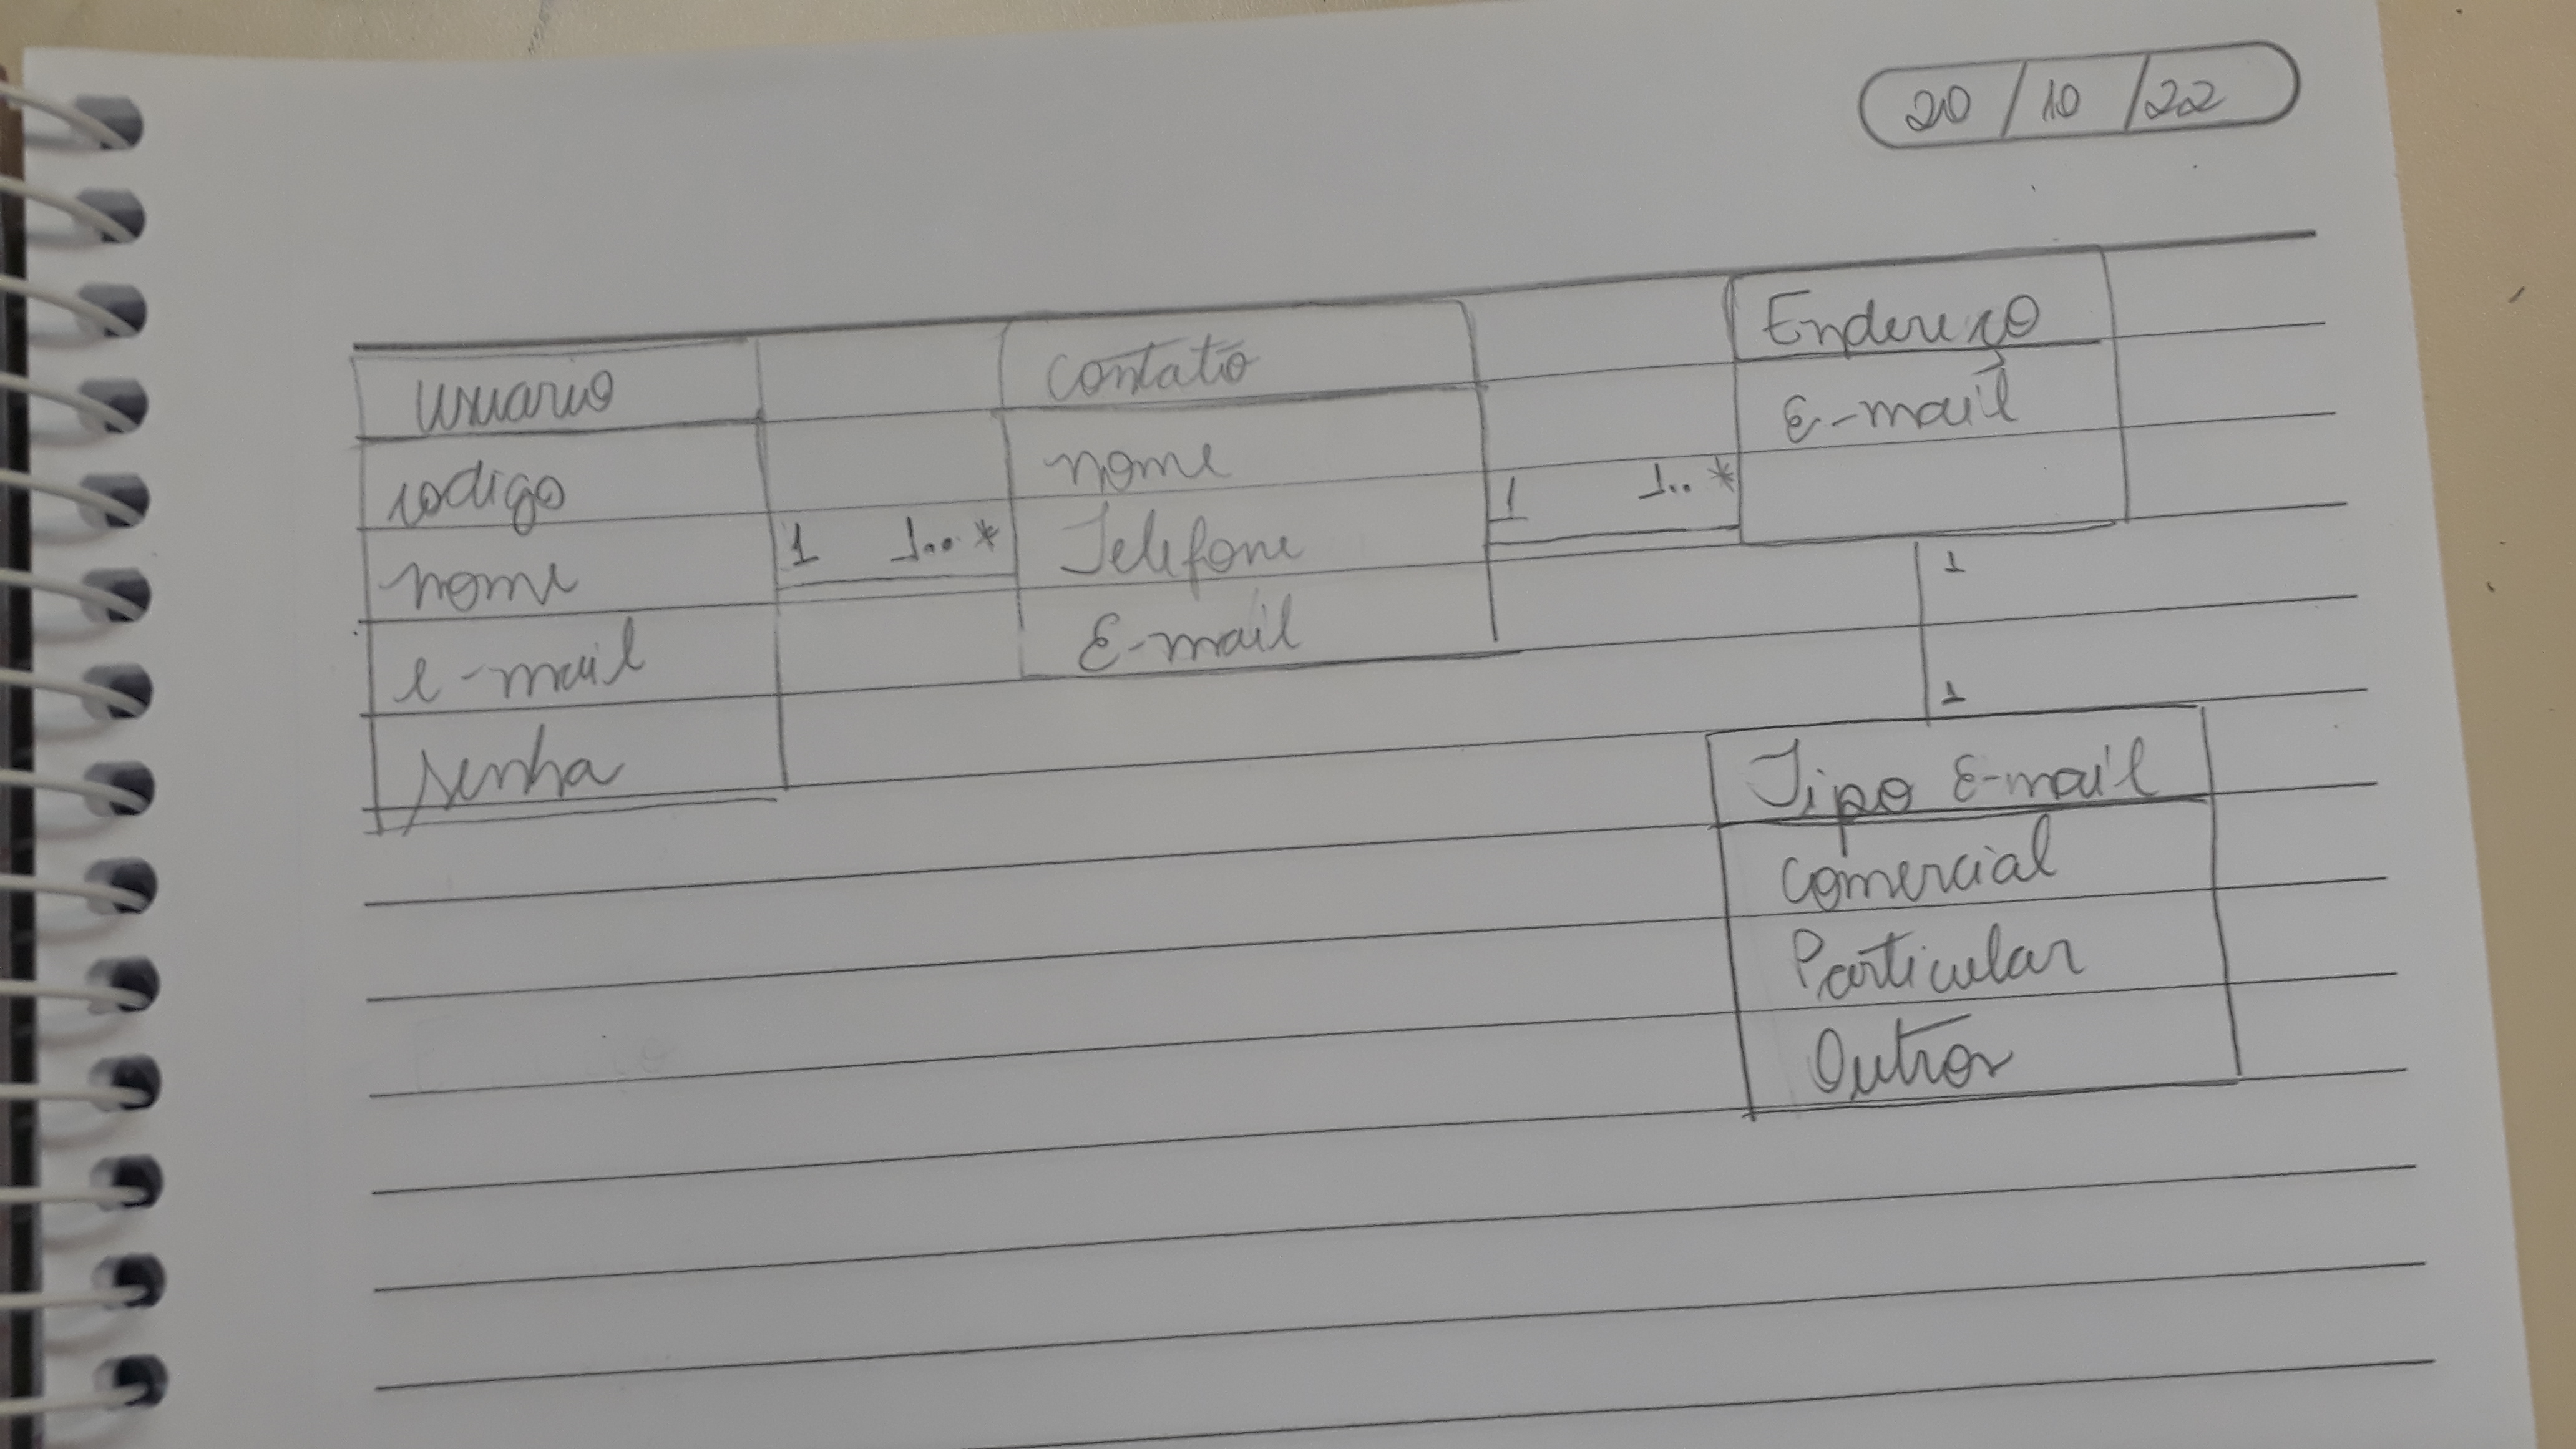 20/10/22
usuario
codigo
nome
e-mail
senha
1 1..*
contato
nome
Telefone
E-mail
1 1..*
Endereço
E-mail
1
1
Tipo E-mail
Comercial
Particular
Outros